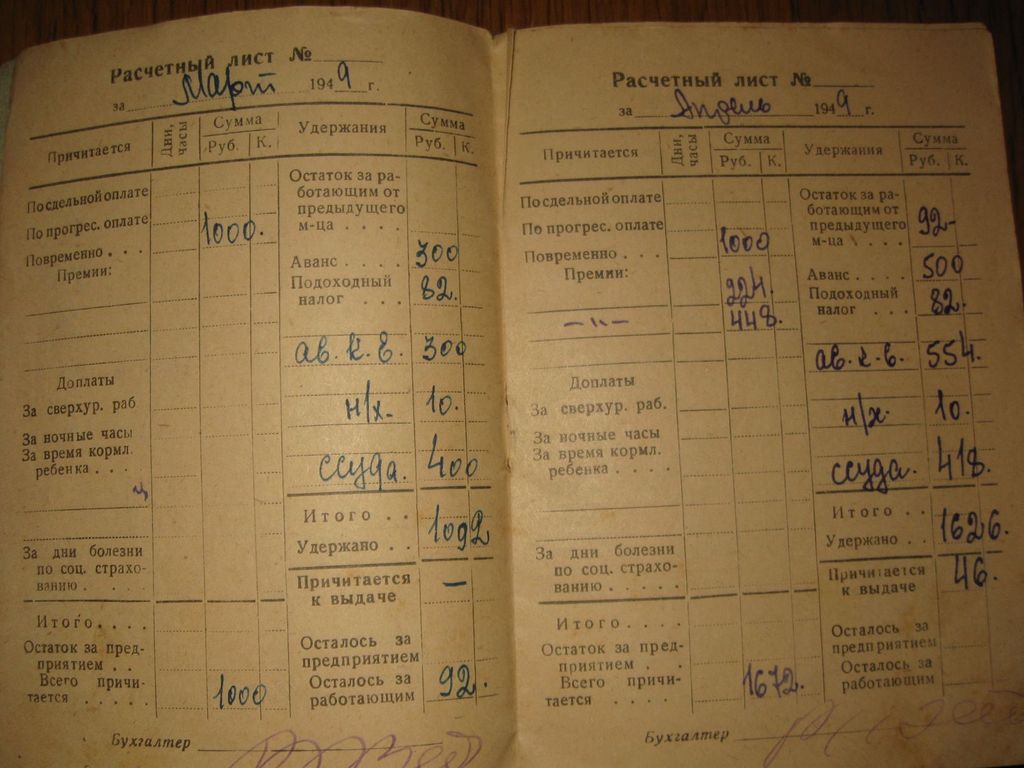 Расчетный лист №
за Март 1949 г.
Причитается
Дни, часы
Сумма
Руб. К.
Удержания
Сумма
Руб. К.
По сдельной оплате
По прогрес. оплате
Повременно . . . 1000.
Премии:
Доплаты
За сверхур. раб
За ночные часы
За время кормл.
ребенка . . .
За дни болезни
по соц. страхо-
ванию . . . .
Итого . . . .
Остаток за пред-
приятием . .
Всего причи-
тается . . . . . 1000
Остаток за ра-
ботающим от
предыдущего
м-ца . . . .
Аванс . . . . 300
Подоходный
налог . . . 82.
ав. к. в. 300
н/х. 10.
ссуда. 400
Итого . .
Удержано . . 1092
Причитается
к выдаче —
Осталось за
предприятием
Осталось за
работающим 92.
Бухгалтер
Расчетный лист №
за Апрель 1949 г.
Причитается
Дни, часы
Сумма
Руб. К.
Удержания
Сумма
Руб. К.
По сдельной оплате
По прогрес. оплате
Повременно . . . 1000
Премии:
224.
—"— 448.
Доплаты
За сверхур. раб.
За ночные часы
За время кормл.
ребенка . . . .
За дни болезни
по соц. страхо-
ванию . . . . .
Итого . . . .
Остаток за пред-
приятием . .
Всего причи-
тается . . . . 1672.
Остаток за ра-
ботающим от
предыдущего
м-ца . . . . 92-
Аванс . . . . 500
Подоходный
налог . . . 82.
ав. к. в. 554.
н/х. 10.
ссуда. 418.
Итого . .
Удержано . . 1626.
Причитается
к выдаче 46.
Осталось за
предприятием
Осталось за
работающим
Бухгалтер